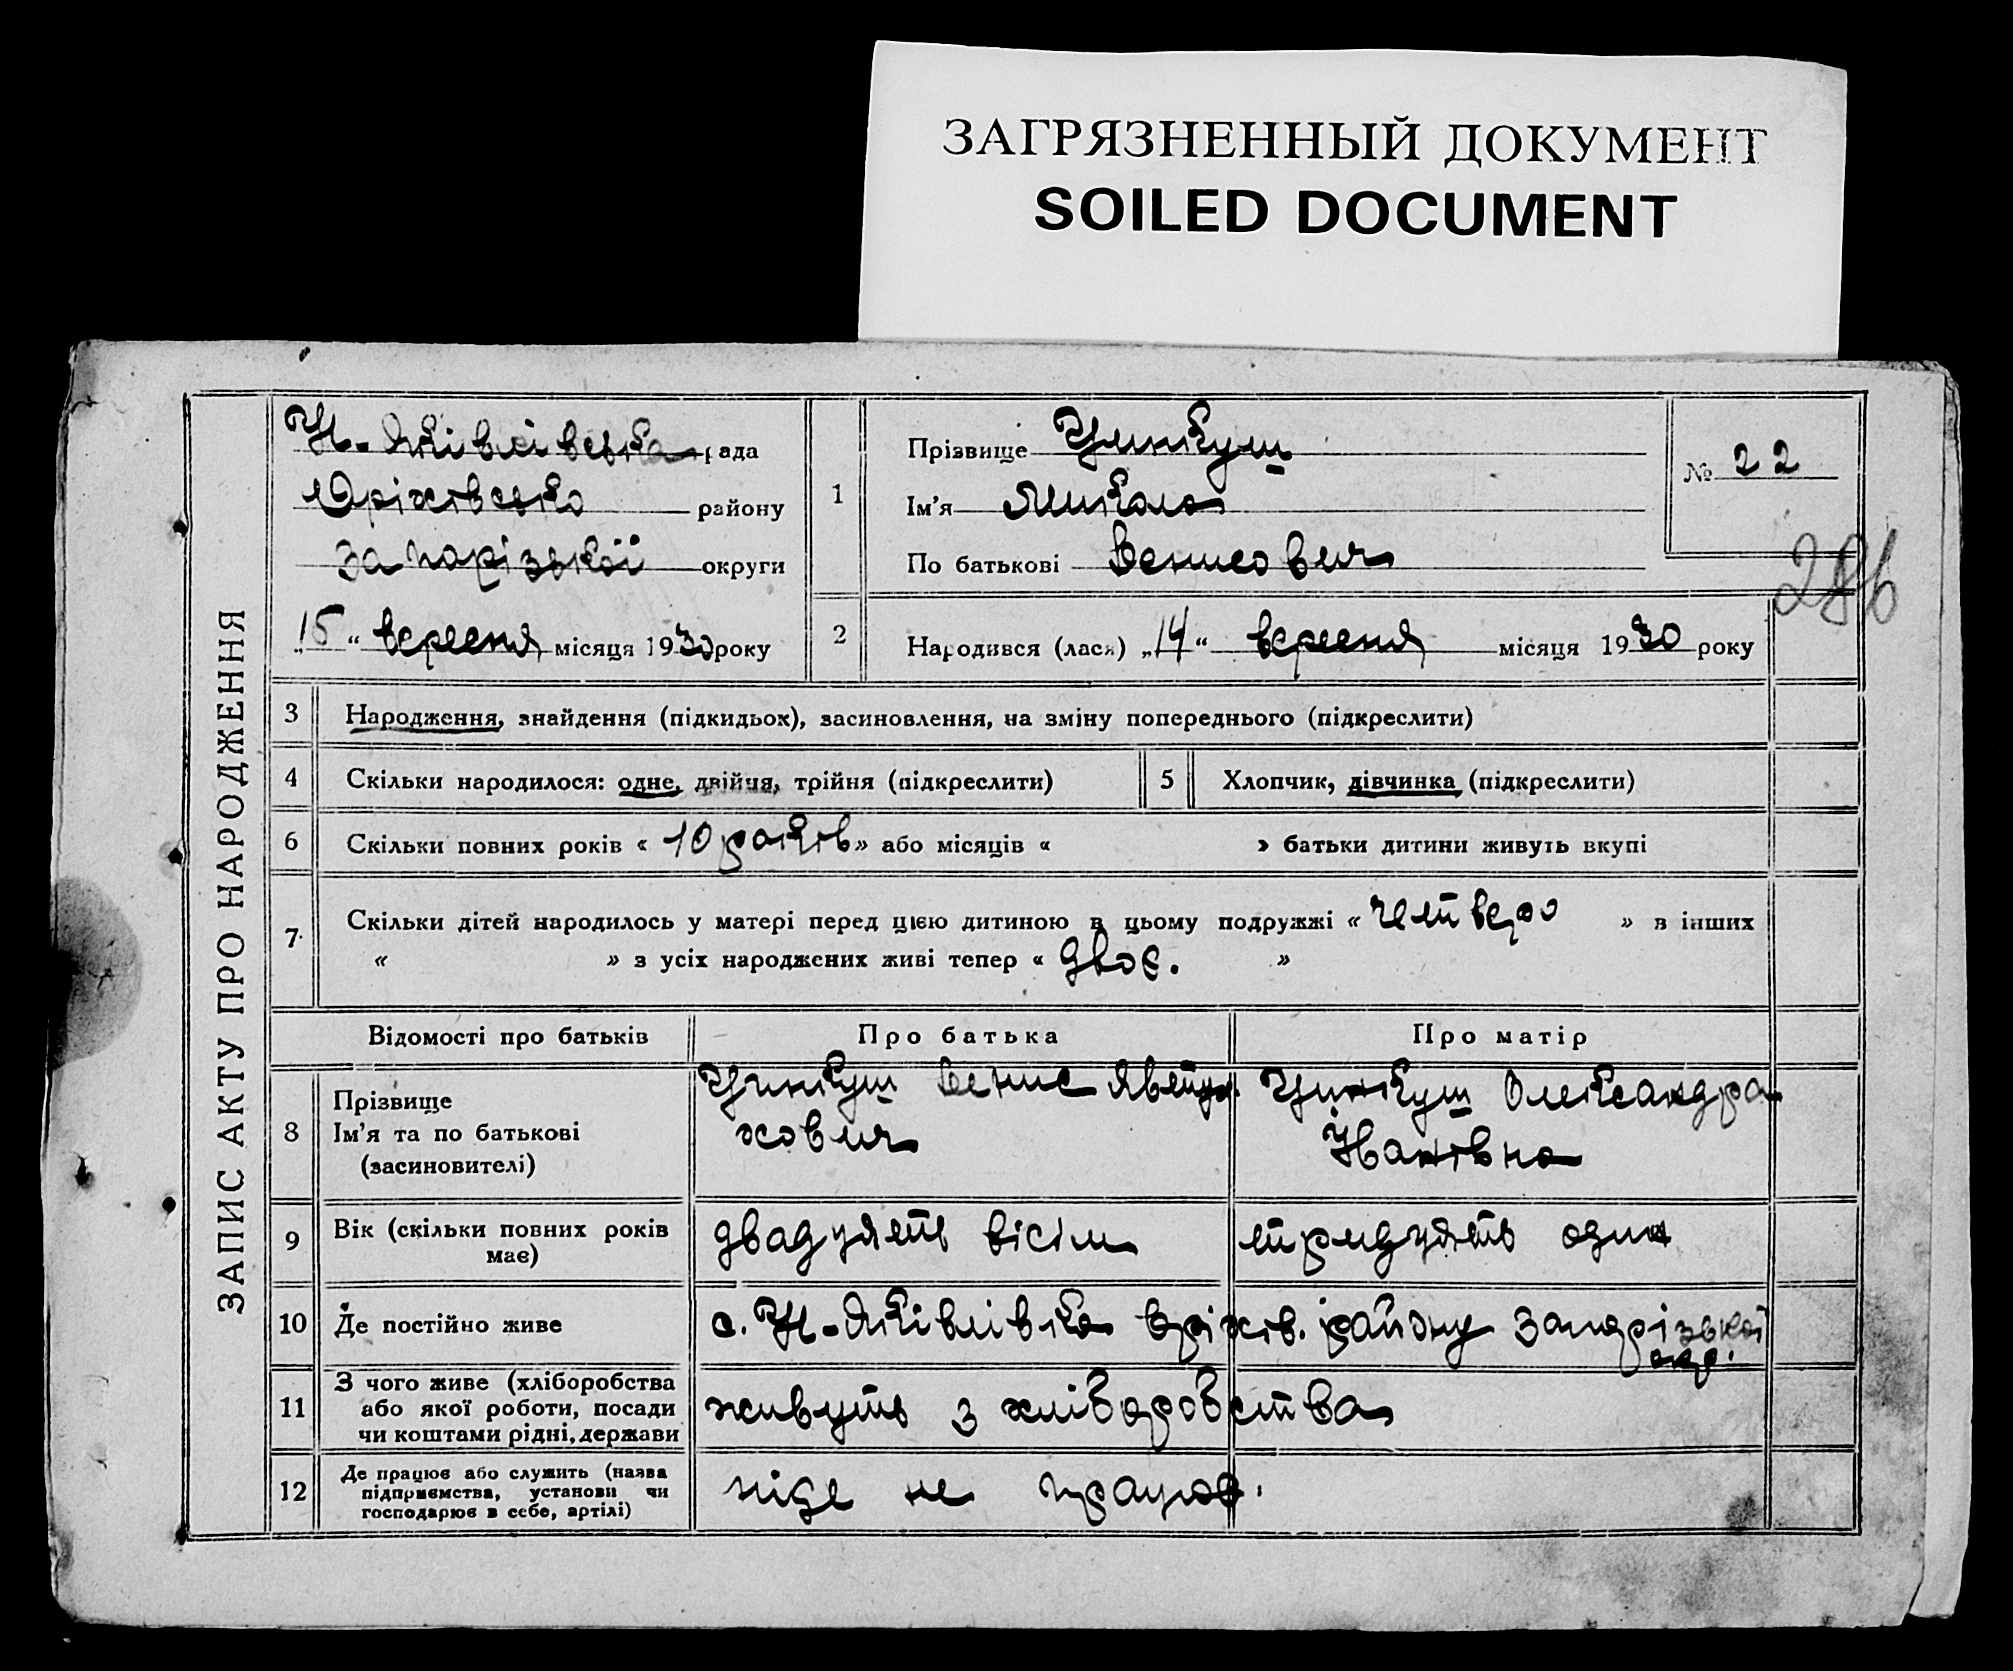 ЗАГРЯЗНЕННЫЙ ДОКУМЕНТ
SOILED DOCUMENT
ЗАПИС АКТУ ПРО НАРОДЖЕННЯ
Н-Яківлівська рада
Оріхівсько району
Запорізької округи
„15“ вересня місяця 1930 року
1
Прізвище Цинкуш
Ім'я Микола
По батькові Денисович
№ 22
286
2 Народився (лася) „14“ вересня місяця 1930 року
3 Народження, знайдення (підкидьок), засиновлення, на зміну попереднього (підкреслити)
4 Скільки народилося: одне, двійня, трійня (підкреслити) 5 Хлопчик, дівчинка (підкреслити)
6 Скільки повних років « 10 років » або місяців « » батьки дитини живуть вкупі
7 Скільки дітей народилось у матері перед цією дитиною в цьому подружжі « четверо » в інших
« » з усіх народжених живі тепер « двоє. »
Відомості про батьків Про батька Про матір
8 Прізвище
Ім'я та по батькові
(засиновителі)
Цинкуш Денис
Цинкуш Олександра
Іванівна
9 Вік (скільки повних років
має)
двадцять вісім тридцять один
10 Де постійно живе с. Н-Яківлівка Оріхів. району Запорізької
окр.
11 З чого живе (хліборобства
або якої роботи, посади
чи коштами рідні, держави
живуть з хліборобства
12 Де працює або служить (назва
підприємства, установи чи
господарює в себе, артілі)
ніде не працює.